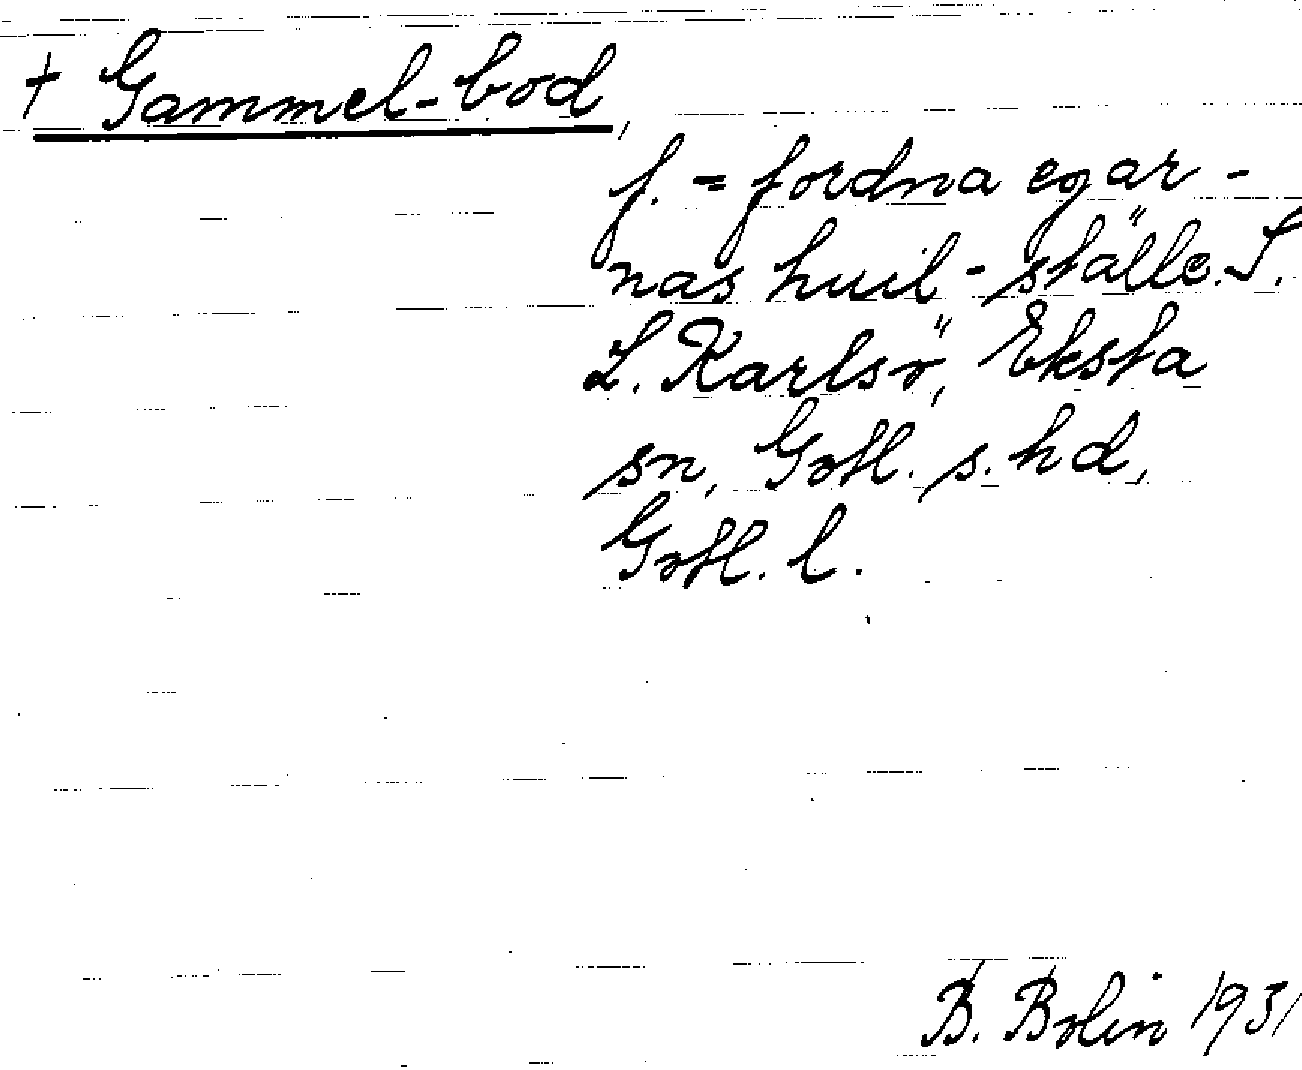 † Gammel-bod,
f. = fordna egar-
nas huil-ställe. S.
L. Karlsö, Eksta
sn, Gotl. s. hd,
Gotl. l.
B. Bolin 1931